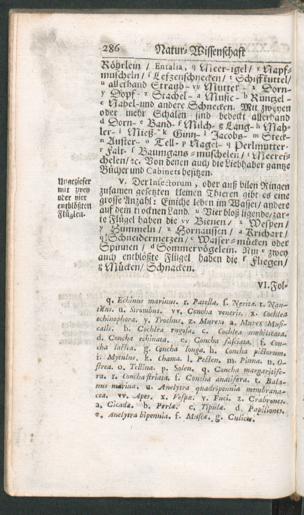 286 Natur-Wissenschaft
Röhrlein / Entalia, Meer-igel / Napf-
muscheln / Lefzenschnecken / Schiffkuttel /
allerhand Strand- Mutter- Dorn-
Topf- Stachel- Music- Runtzel-
Nabel-und andere Schnecken. Mit zweyen
oder mehr Schalen sind bedeckt allerhand
Dorn- Band- Milch- Lang- Mah-
ler- Mieß- Ginn- Jacobs- Steck-
Auster- Tell- Nagel- Perlmutter-
Falt- Baumgans-muscheln / Meerei-
cheln / etc. Von denen auch die Liebhaber gantze
Bücher und Cabinets besitzen.
Ungeziefer
mit zwey
oder vier
entblößten
Flügeln.
V. Der Insectorum, oder aus vilen Ringen
zusamen gesetzten kleinen Thieren gibt es eine
grosse Anzahl: Einiche leben im Wasser / andere
auf dem trocknen Land. Vier bloß ligende / zar-
te Flügel haben die Bienen / Wespen /
Hummeln / Hornaussen / Krichart /
Schneidermetzen / Wasser-mücken oder
Spinnen / Sommervögelein. Nur zwey
auch entblößte Flügel haben die Fliegen /
Mücken / Schnacken.
VI. Fol-
q. Echinus marinus. r. Patella. s. Nerita. t. Nau-
tilus. u. Strombus. vv. Concha veneris. x. Cochlea
echinophora. y. Trochus. z. Murex. a. Murex Musi-
calis. b. Cochlea rugosa. c. Cochlea umbilicata.
d. Concha echinata. e. Concha fasciata. f. Con-
cha lactea. g. Concha longa. h. Concha pictorum.
i. Mytulus. k. Chama. l. Pecten. m. Pinna. n. O-
strea. o. Tellina. p. Solen. q. Concha margaritife-
ra. r. Concha striata. s. Concha anatifera. t. Bala-
nus marina. u. Anelytra quadripennia membrana-
cea. vv. Apes. x. Vespæ. y. Fuci. z. Crabrones.
a. Cicada. b. Perlæ. c. Tipula. d. Papiliones.
e. Anelytra bipennia. f. Muscæ. g. Culices.